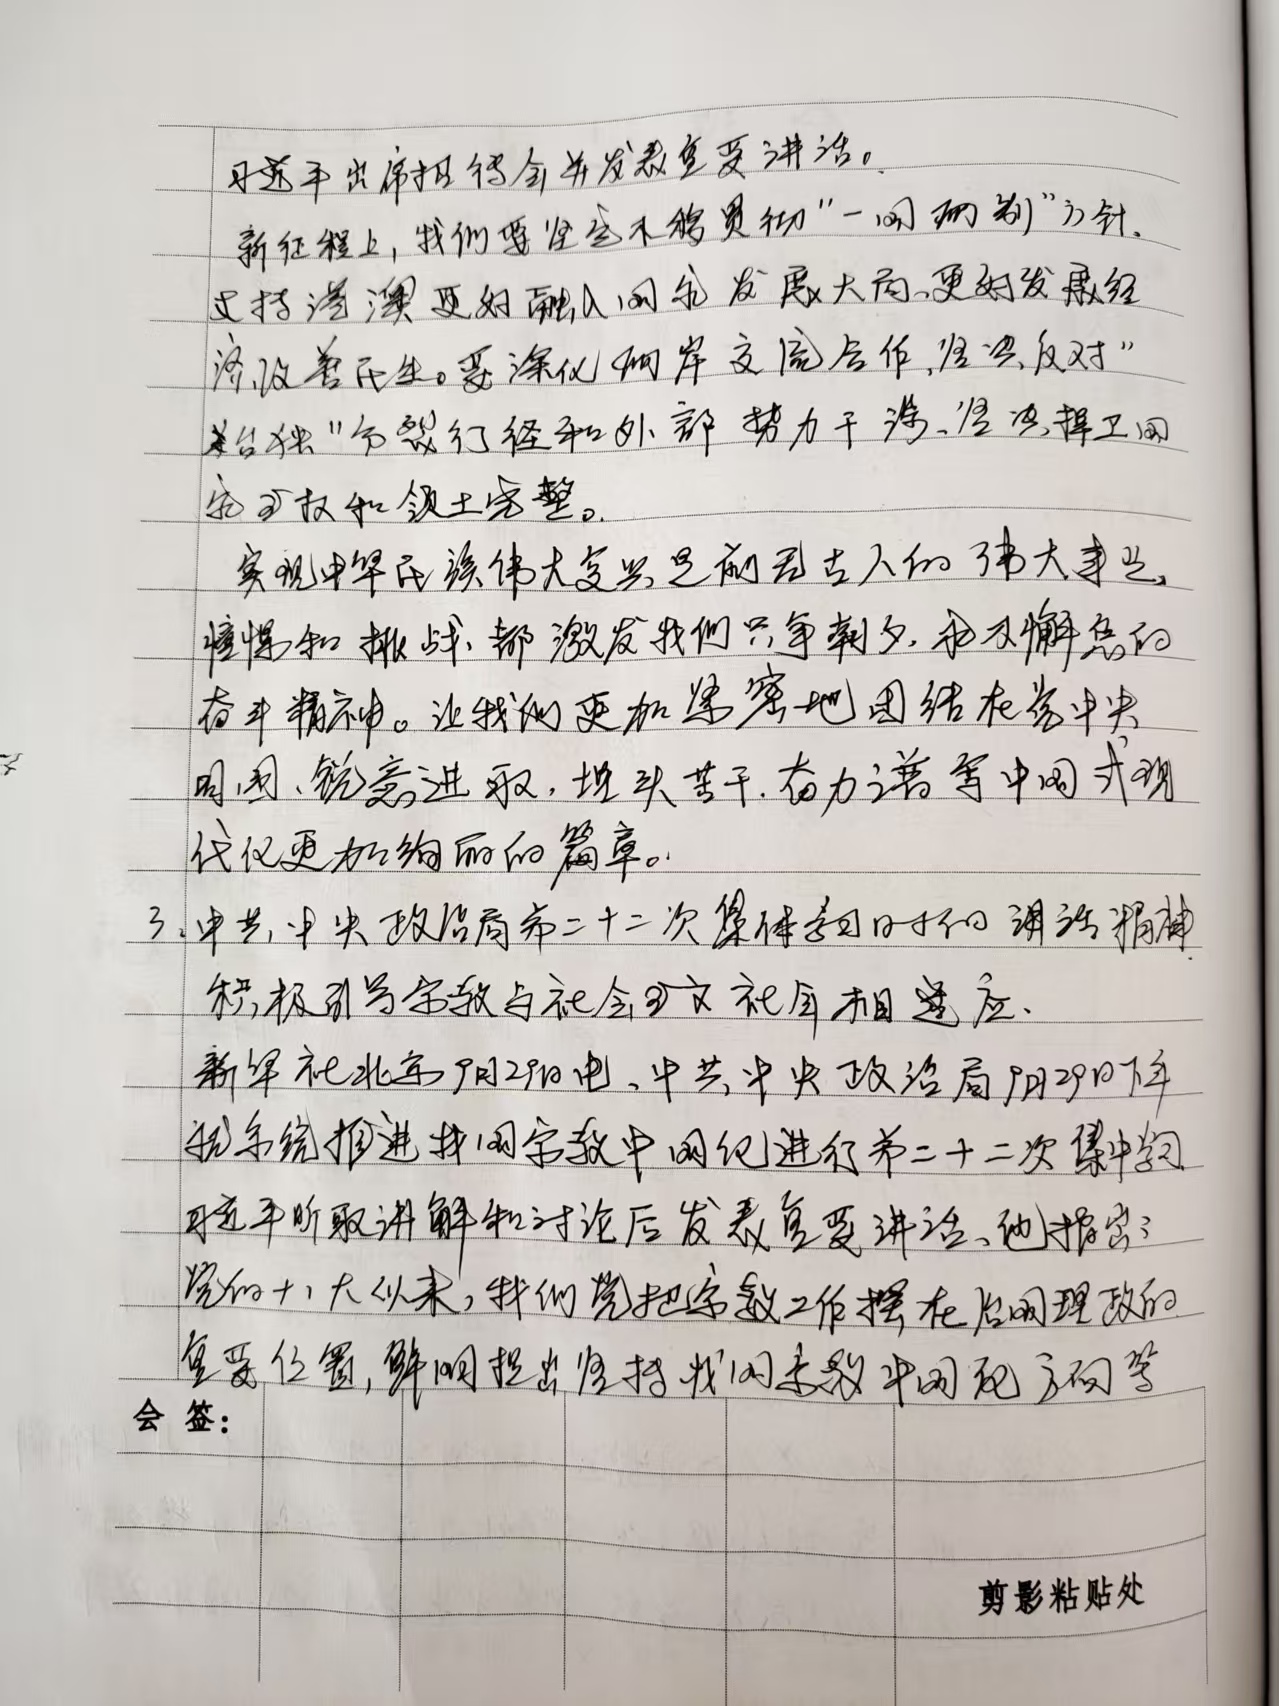 习近平出席招待会并发表重要讲话。
新征程上，我们要坚定不移贯彻“一国两制”方针、
支持港澳更好融入国家发展大局、更好发展经
济、改善民生。要深化两岸交流合作，坚决反对“
台独”分裂行径和外部势力干涉、坚决捍卫国
家主权和领土完整。
实现中华民族伟大复兴是前无古人的伟大事业，
憧憬和挑战、都激发我们只争朝夕、永不懈怠的
奋斗精神。让我们更加紧密地团结在党中央
周围、锐意进取，埋头苦干、奋力谱写中国式现
代化更加绚丽的篇章。
3、中共中央政治局第二十二次集体学习时的讲话精神
积极引导宗教与社会主义社会相适应、
新华社北京9月29日电、中共中央政治局9月29日下午
就系统推进我国宗教中国化进行第二十二次集中学习
习近平听取讲解和讨论后发表重要讲话、他指出：
党的十八大以来，我们党把宗教工作摆在治国理政的
重要位置，鲜明提出坚持我国宗教中国化方向等
会签：
剪影粘贴处